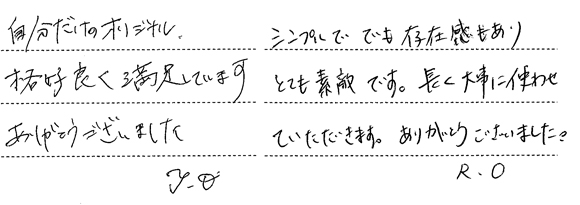 自分だけのオリジナル、
格好良く満足しています
ありがとうございました
Y-O
シンプルで でも存在感もあり
とても素敵です。長く大事に使わせ
ていただきます。ありがとうございました。
R.O